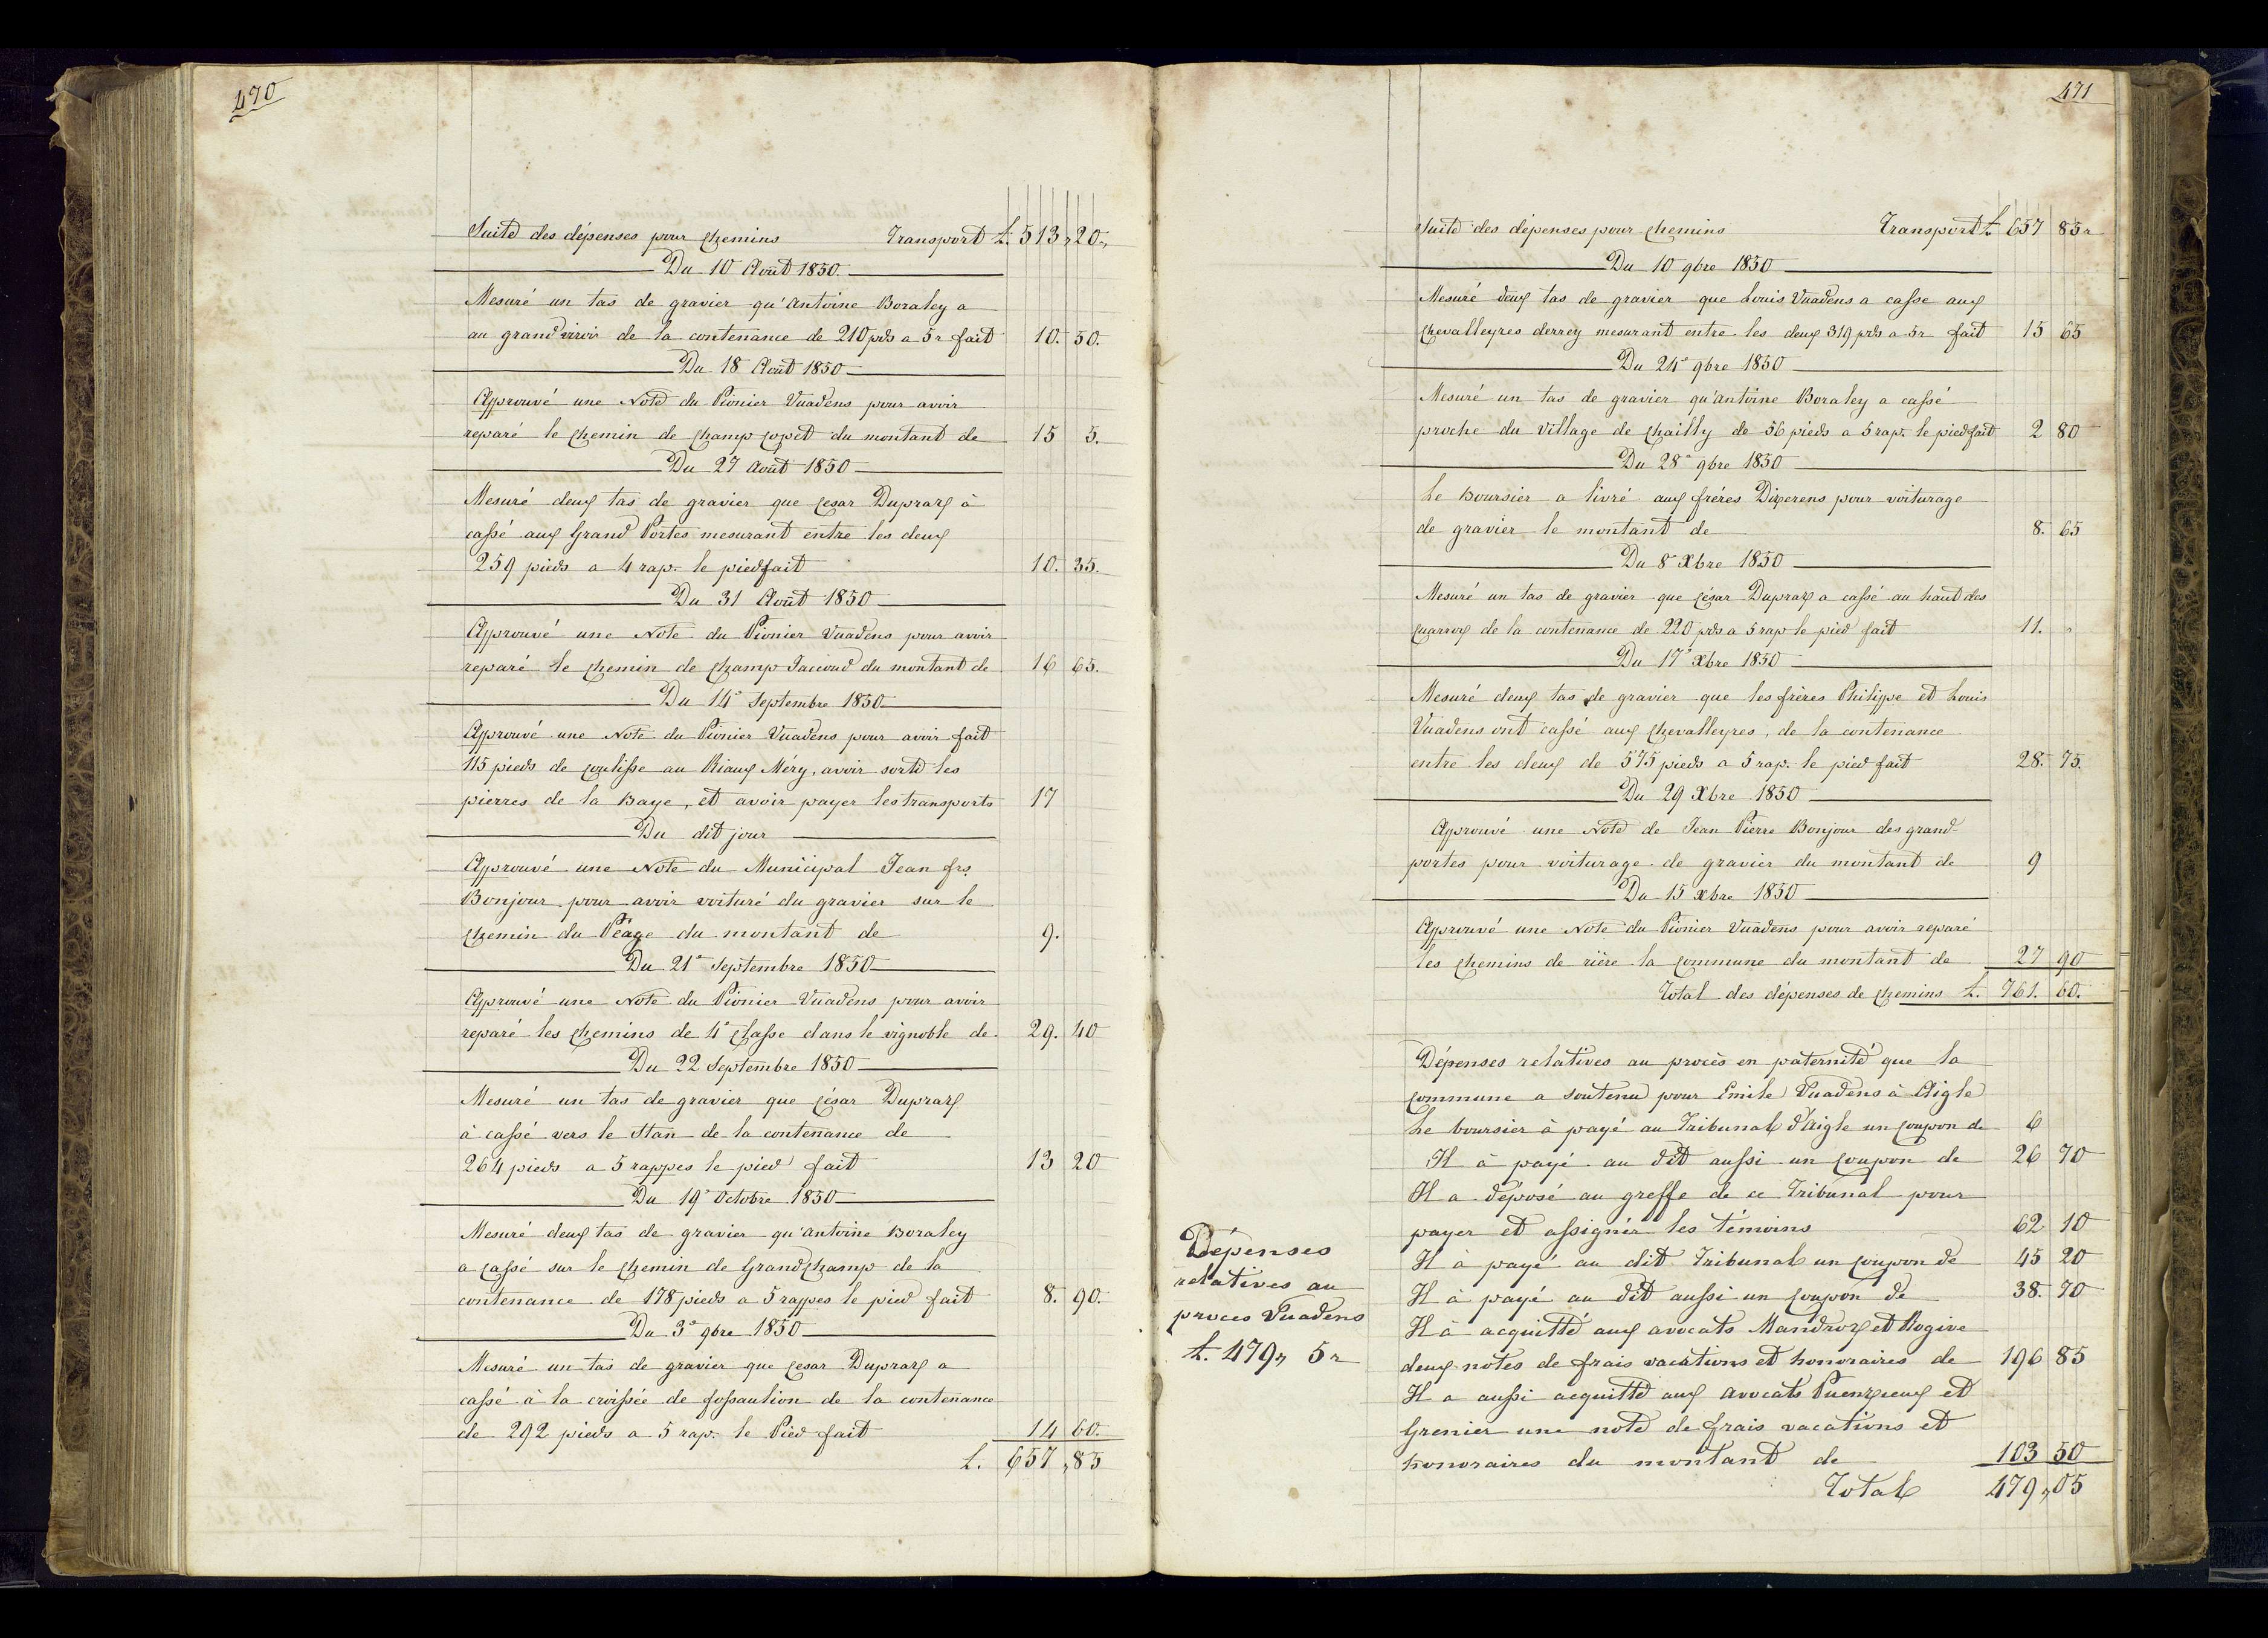 470
Suite des dépenses pour chemins Transport L. 513 „ 20 „
Du 10 Août 1850
Mesuré un tas de gravier qu'Antoine Boraley a
au grand viroir de la contenance de 210 pds a 5 r fait 10. 50.
Du 18 Août 1850
Approuvé une Note du Pionier Vuadens pour avoir
reparé le chemin de Champ copet du montant de 15 5.
Du 27 Août 1850
Mesuré deux tas de gravier que Cesar Dupraz à
cassé aux Grand Portes mesurant entre les deux
259 pieds a 4 rap. le pied fait 10. 35.
Du 31 Août 1850
Approuvé une Note du Pionier Vuadens pour avoir
reparé le chemin de Champ Jaccoud du montant de 16 65.
Du 14e Septembre 1850
Approuvé une Note du Pionier Vuadens pour avoir fait
115 pieds de coulisse au Riaux Méry, avoir sorti les
pierres de la Baye, et avoir payer les transports 17
Du dit jour
Approuvé une Note du Municipal Jean frs.
Bonjour pour avoir voituré du gravier sur le
chemin du Péage du montant de 9.
Du 21e Septembre 1850
Approuvé une Note du Pionier Vuadens pour avoir
reparé les chemins de 4e Classe dans le vignoble de 29. 40
Du 22 Septembre 1850
Mesuré un tas de gravier que César Dupraz
à cassé vers le Stan de la contenance de
264 pieds a 5 rappes le pied fait 13 20
Du 19e Octobre 1850
Mesuré deux tas de gravier qu'Antoine Boraley
a cassé sur le chemin de Grandchamp de la
contenance de 178 pieds a 5 rappes le pied fait 8. 90.
Du 3e 9bre 1850
Mesuré un tas de gravier que Cesar Dupraz a
cassé à la croisée de fossaution de la contenance
de 292 pieds a 5 rap. le Pied fait 14 60.
L. 657 „ 85
471
Suite des dépenses pour chemins Transport L. 657 85 r
Du 10 9bre 1850
Mesuré deux tas de gravier que Louis Vuadens a casse aux
Chevalleyres derrey mesurant entre les deux 319 pds a 5 r fait 15 65
Du 24e 9bre 1850
Mesuré un tas de gravier qu'Antoine Boraley a cassé
proche du village de Chailly de 56 pieds a 5 rap. le pied fait 2 80
Du 28e 9bre 1850
Le Boursier a livré aux fréres Dizerens pour voiturage
de gravier le montant de 8. 65
Du 8e Xbre 1850
Mesuré un tas de gravier que César Dupraz a cassé au haut des
Quarroz de la contenance de 220 pds a 5 rap le pied fait 11. "
Du 17e Xbre 1850
Mesuré deux tas de gravier que les frères Philippe et Louis
Vuadens ont cassé aux Chevalleyres, de la contenance
entre les deux de 575 pieds a 5 rap. le pied fait 28. 75.
Du 29 Xbre 1850
Approuvé une Note de Jean Pierre Bonjour des grand-
portes pour voiturage de gravier du montant de 9
Du 15 Xbre 1850
Approuvé une Note du Pionier Vuadens pour avoir reparé
les chemins de rière la Commune du montant de 27 90
Total des dépenses de chemins L. 761. 60.
Dépenses relatives au procès en paternité que la
Commune a soutenu pour Emile Vuadens à Aigle
Le boursier à payé au Tribunal d'Aigle un coupon de 6
Il à payé au dit aussi un coupon de 26 70
Il a déposé au greffe de ce Tribunal pour
payer et assigner les témoins 62 10
Il à payé au dit Tribunal un coupon de 45 20
Il à payé au dit aussi un coupon de 38. 70
Il à acquitté aux avocats Mandroz et Rogive
deux notes de frais vacations et honoraires de 196 85
Il a aussi acquitté aux Avocats Puenzieux et
Grenier une note de frais vacations et
honoraires du montant de 103 50
Total 479 „ 05
Dépenses
relatives au
proces Vuadens
L. 479 „ 5 r